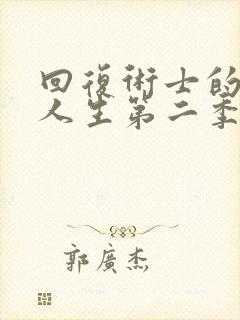 回復術士的
人生第二季
郭廣杰